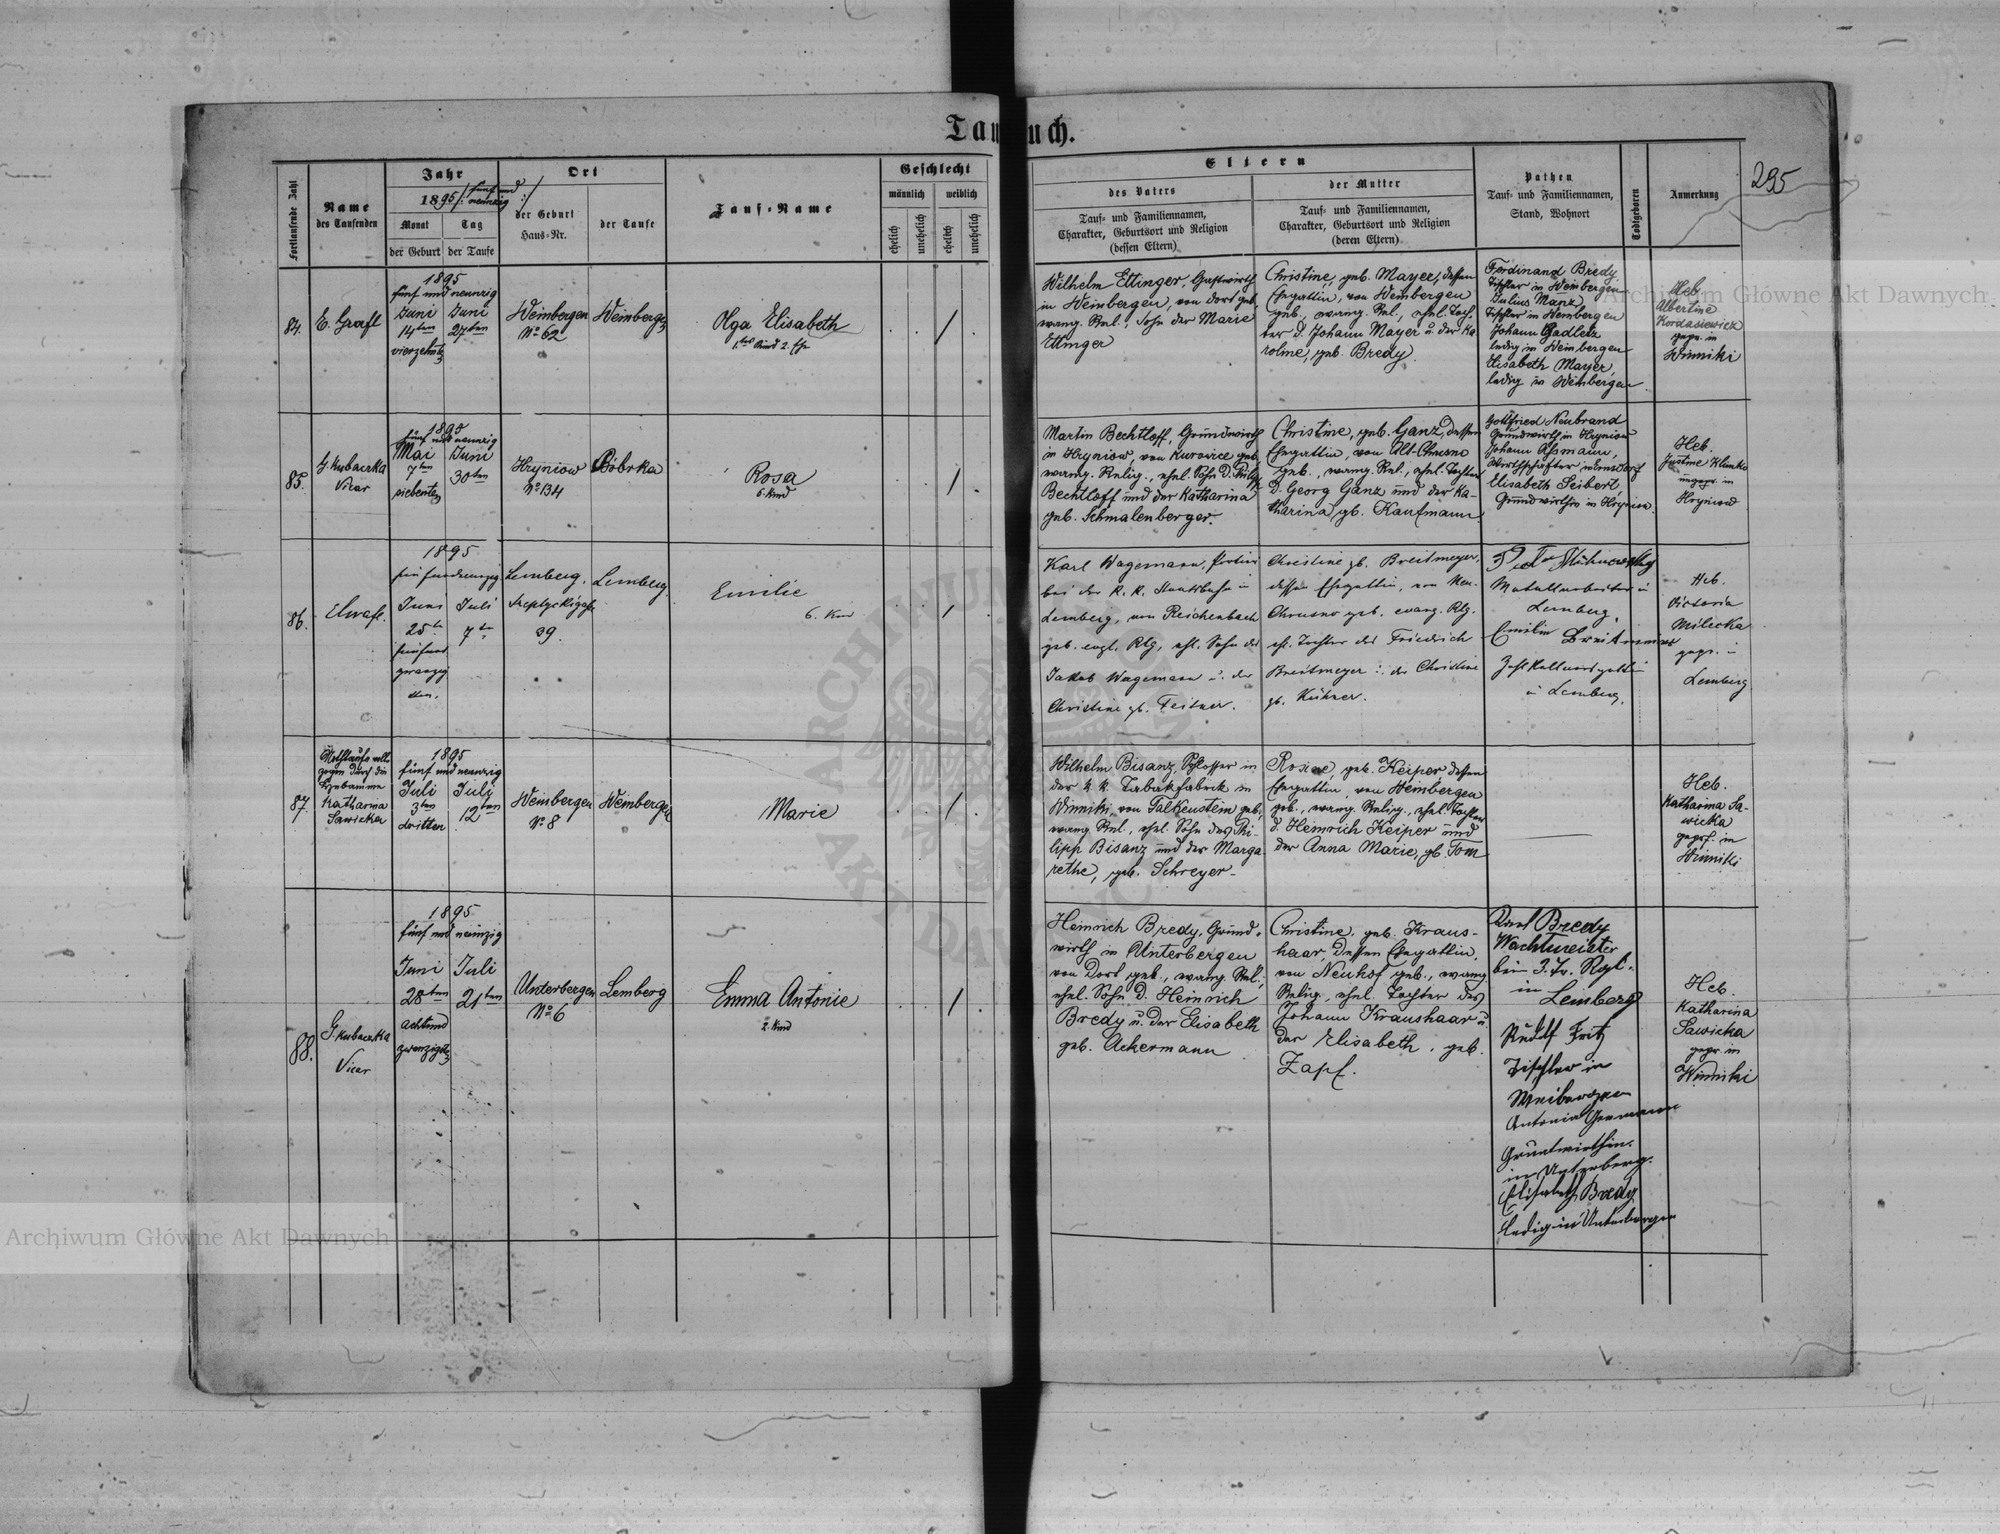 Taufbuch.
295
Fortlaufende Zahl
Name
des Taufenden
Jahr
1895 /: fünf und
neunzig :/
Monat
Tag
der Geburt
der Taufe
Ort
der Geburt
Haus-Nr.
der Taufe
Tauf-Name
Geschlecht
männlich
weiblich
ehelich
unehelich
ehelich
unehelich
Eltern
des Vaters
Tauf- und Familiennamen,
Charakter, Geburtsort und Religion
(dessen Eltern)
der Mutter
Tauf- und Familiennamen,
Charakter, Geburtsort und Religion
(deren Eltern)
Pathen
Tauf- und Familiennamen,
Stand, Wohnort
Todtgeboren
Anmerkung
84.
E. Graft
1895
fünf und neunzig
Juni
14ten
vierzehnten
Juni
27ten
Weinbergen
No 62
Weinbergen
Olga Elisabeth
1tes Kind 2. Ehe
Wilhelm Ettinger, Gastwirth
in Weinbergen, von dort geb.
evang. Rel., Sohn der Marie
Ettinger
Christine, geb. Mayer, dessen
Ehegattin, von Weinbergen
geb., evang. Rel., ehel. Toch-
ter d. Johann Mayer u. der Ka
roline, geb. Bredy.
Ferdinand Bredy
Tischler in Weinbergen
Julius Manz
Tischler in Weinbergen
Johann
ledig in Weinbergen
Elisabeth Mayer,
ledig in Weinbergen
Heb.
Albertine
Kordasiewicz
gepr. in
Winniki
85.
G. Kubaczka
Vicar
1895
fünf und neunzig
Mai
7ten
siebenten
Juni
30ten
Hryniow
No 134
Bóbrka
Rosa
6. Kind
Martin Bechtloff, Grundwirth
in Hryniow, von Kurovice geb.
evang. Relig., ehel. Sohn d. Philipp
Bechtloff und der Katharina
geb. Schmalenberger.
Christine, geb. Ganz, dessen
Ehegattin, von Alt-Chrusno
geb., evang. Rel., ehel. Tochter
d. Georg Ganz und der Ka-
tharina, gb. Kaufmann.
Gottfried Neubrand
Grundwirth in Hryniow
Johann Assmann,
Wirthschafter in
Elisabeth Seibert,
Grundwirthin in Hryniow.
Heb.
Justine Klimko
ungepr. in
Hryniow
86.
1895
fünfundneunzig
Juni
25te
fünfund
zwanzig
sten.
Juli
7te
Lemberg.
Szeptyckigasse
39.
Lemberg
Emilie
6. Kind
Karl Wagemann, Portier
bei der k. k. Staatsbahn in
Lemberg, von Reichenbach
geb. evgl. Rlg, ehl. Sohn des
Jakob Wagemann u. der
Christine gb. Feitner.
Christine gb. Breitmeyer,
dessen Ehegattin, von Neu-
Chrusno geb. evang. Rlg.
ehl. Tochter des Friedrich
Breitmeyer u. der Christine
gb. Kühner.
Metallarbeiter in
Lemberg,
Emilie Breitmeier
in Lemberg.
Heb.
Victoria
Milecka
gepr. in
Lemberg
87.
Nothtaufe voll-
zogen durch die
Hebamme
Katharina
Sawicka
1895
fünf und neunzig
Juli
3ten
dritten
July
12ten
Weinbergen
No 8
Weinbergen
Marie
Wilhelm Bisanz, Schlosser in
der k. k. Tabakfabrik in
Winniki, von Falkenstein geb.,
evang. Rel., ehel. Sohn des Phi-
lipp Bisanz und der Marga
rethe, geb. Schreyer.
Rosine, geb. Keiper dessen
Ehegattin, von Weinbergen
geb., evang. Relig., ehel. Tochter
d. Heinrich Keiper und
der Anna Marie, gb. Tom
Heb.
Katharina Sa-
wicka
geprf. in
Winniki
88.
G. Kubaczka
Vicar
1895
fünf und neunzig
Juni
28ten
achtund
zwanzigsten
Juli
21ten
Unterbergen
No 6
Lemberg
Emma Antonie
2. Kind
Heinrich Bredy, Grund-
wirth in Unterbergen
von dort geb., evang. Rel.,
ehel. Sohn d. Heinrich
Bredy u. der Elisabeth
geb. Ackermann
Christine, geb. Kraus-
haar, dessen Ehegattin,
von Neuhof geb., evang.
Relig., ehel. Tochter des
Johann Kraushaar u.
der Elisabeth, geb.
Zapf.
Karl Bredy
Wachtmeister
beim 3. Tr. Rgt.
in Lemberg
Rudolf Fritz
Tischler in
Weinbergen
Antonia Germann
Gruntwirthin.
in Unterberg.
Elisabeth Bredy
Ledig in Unterbergen
Heb.
Katharina
Sawicka
gepr. in
Winniki
Archiwum Główne Akt Dawnych
Archiwum Główne Akt Dawnych